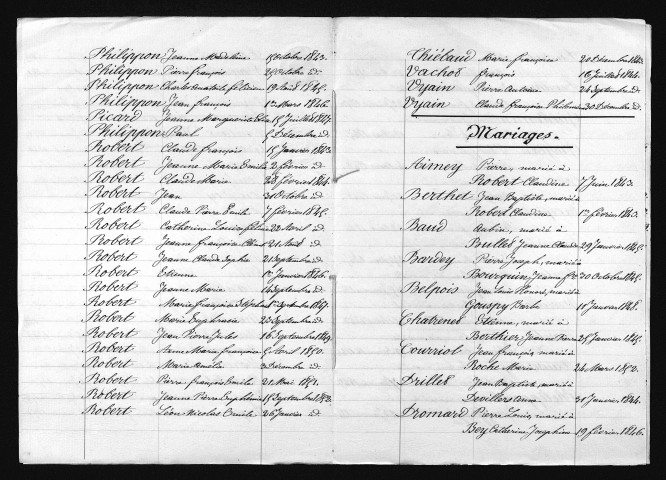 Philippon Jeanne Madeleine 15 Octobre 1843.
Philippon Pierre françois 29 Octobre id.
Philippon Charles 19 Août 1845.
Philippon Jean françois 1er Mars 1846.
Picard Jeanne Marguerite 15 Juillet 1847.
Philippon Paul 5 Décembre id.
Robert Claude françois 15 Janvier
Robert Jeanne Marie Emilie 2 février id.
Robert Claude Marie 28 février 1844.
Robert Jean 31 Octobre id.
Robert Claude Pierre Emile 7 février 1845.
Robert Catherine Louise 22 Avril id.
Robert Jeanne françoise 21 Août id.
Robert Jeanne Claude 21 Septembre id.
Robert Etienne 1er Janvier 1846.
Robert Jeanne Marie 14 Septembre id.
Robert Marie françoise Septembre 1847.
Robert Marie Euphrasie 23 Septembre id.
Robert Jean Pierre Jules 16 Septembre 1849.
Robert Anne Marie françoise 5 Avril 1850.
Robert Marie Amélie 3 Décembre id.
Robert Pierre françois Emile 21 Mai 1851.
Robert Jeanne Pierre 15 Septembre 1853.
Robert Léon Nicolas Emile 26 Janvier id.
Thiébaud Marie françoise 20 Décembre 1843.
Vachos françois 16 Juillet 1844.
Vyain Pierre Antoine 24 Septembre id.
Vyain Claude françoise Philomène 30 Décembre id.
Mariages.
Aimey Pierre, marié à
Robert Claudine 7 Juin 1843.
Berthet Jean Baptiste, marié à
Robert Claudine 1er février 1843.
Baud Aubin, marié à
Poulles Jeanne Claude 29 Janvier 1845.
Bardey Pierre Joseph, marié à
Bourquin Jeanne fse 30 Octobre 1845.
Belpois Jean Louis marié à
Gouspy Barbe 18 Janvier 1848.
Chatrenet Etienne, marié à
Berthier Jeanne 25 Janvier 1845.
Courriol Jean françois, marié à
Roche Marie 24 Mars 1852.
Drilles Jean Baptiste, marié à
Devillers Anne 31 Janvier 1844.
Dromard Pierre Louis, marié à
Bey Catherine Joséphine 19 février 1846.